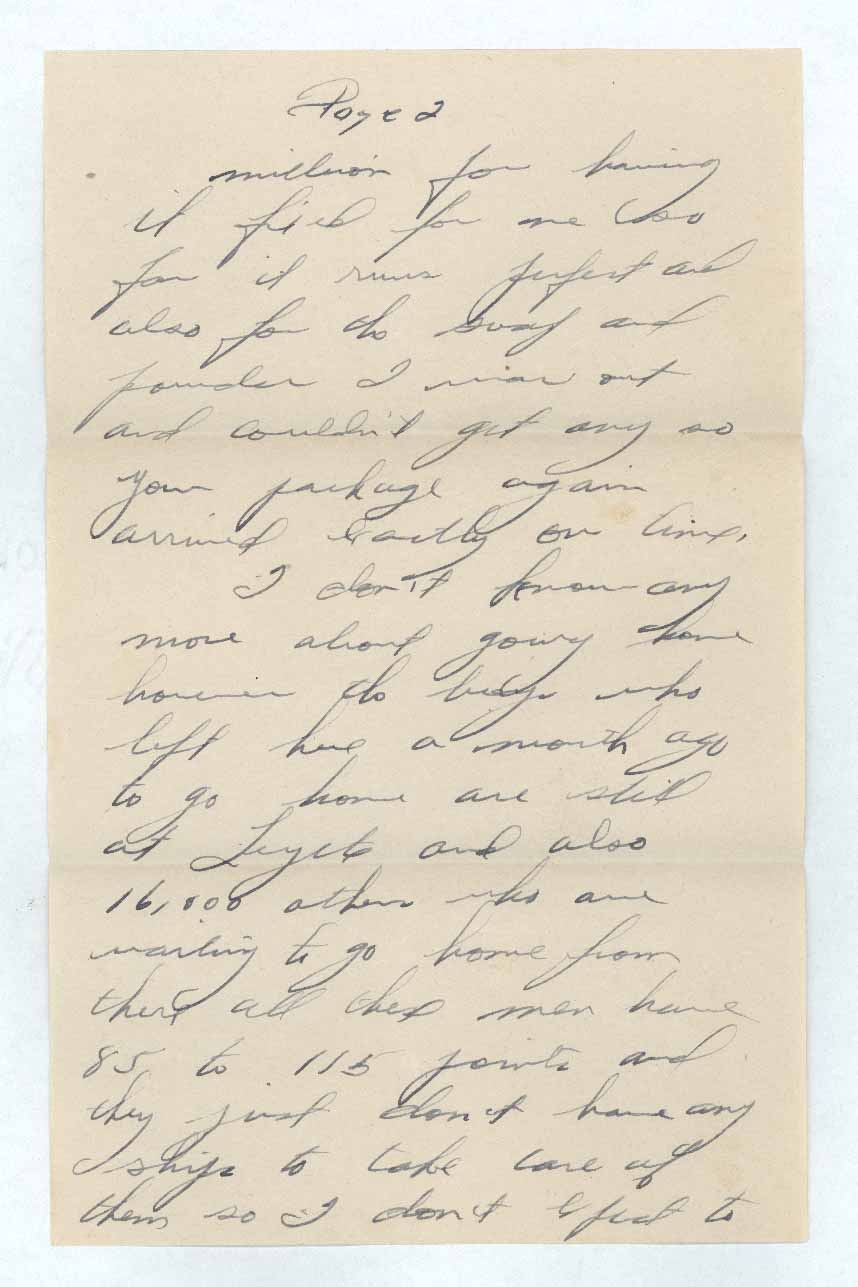 Page 2
million for having
it fixed for me (so
far it runs perfect and
also for the soap and
powder I was out
and couldn't get any so
your package again
arrived exactly on time.
I don't know any
more about going home
however the boys who
left here a month ago
to go home are still
at Leyte and also
16,000 others who are
waiting to go home from
there all these men have
85 to 115 points and
they just don't have any
ships to take care of
them so I don't expect to